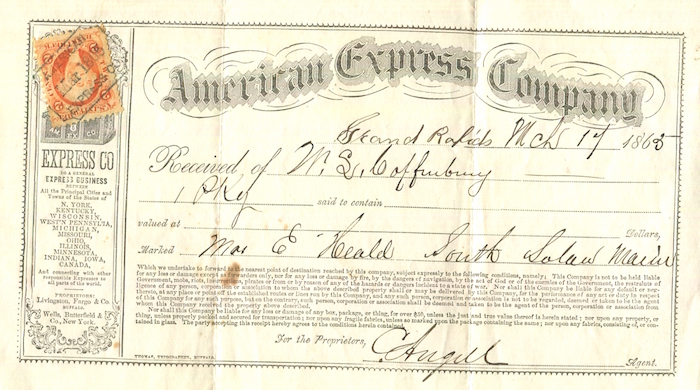 American Express Company
Grand Rapids Mch 17 1865
Received of W. S. Coffinbury
1 Pkg said to contain
valued at Dollars,
Marked Mrs E Heald South Solon Maine
EXPRESS CO
DO A GENERAL
EXPRESS BUSINESS
BETWEEN
All the Principal Cities and
Towns of the States of
N. YORK,
KENTUCKY,
WISCONSIN,
WEST'N PENNSYLTA,
MICHIGAN,
MISSOURI,
OHIO,
ILLINOIS,
MINNESOTA,
INDIANA, IOWA,
CANADA,
And connecting with other
responsible Expresses to
all parts of the world.
PROPRIETORS:
Livingston, Fargo & Co.
Wells, Butterfield &
Co., New York.
Which we undertake to forward to the nearest point of destination reached by this company, subject expressly to the following conditions, namely: This Company is not to be held liable
for any loss or damage except as forwarders only, nor for any loss or damage by fire, by the dangers of navigation, by the act of God or of the enemies of the Government, the restraints of
Government, mobs, riots, insurrections, pirates or from or by reason of any of the hazards or dangers incident to a state of war. Nor shall this Company be liable for any default or neg-
ligence of any person, corporation or association to whom the above described property shall or may be delivered by this Company, for the performance of any act or duty in respect
thereto, at any place or point off the established routes or lines run by this Company, and any such person, corporation or association is not to be regarded, deemed or taken to be the agent
of this Company for any such purpose, but on the contrary, such person, corporation or association shall be deemed and taken to be the agent of the person, corporation or association from
whom this Company received the property above described.
Nor shall this Company be liable for any loss or damage of any box, package, or thing, for over $50, unless the just and true value thereof is herein stated; nor upon any property or
thing, unless properly packed and secured for transportation; nor upon any fragile fabrics, unless so marked upon the package containing the same; nor upon any fabrics, consisting of, or con-
tained in glass. The party accepting this receipt hereby agrees to the conditions herein contained.
For the Proprietors,
C Angell Agent.
THOMAS, TYPOGRAPHER, BUFFALO.